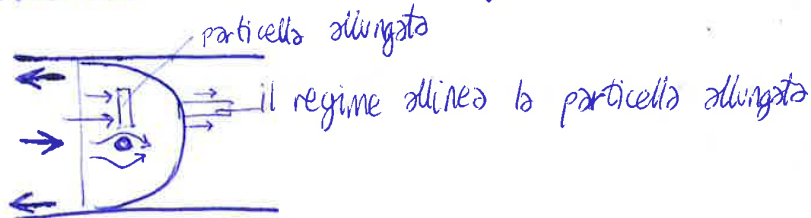 particella allungata
il regime allinea la particella allungata